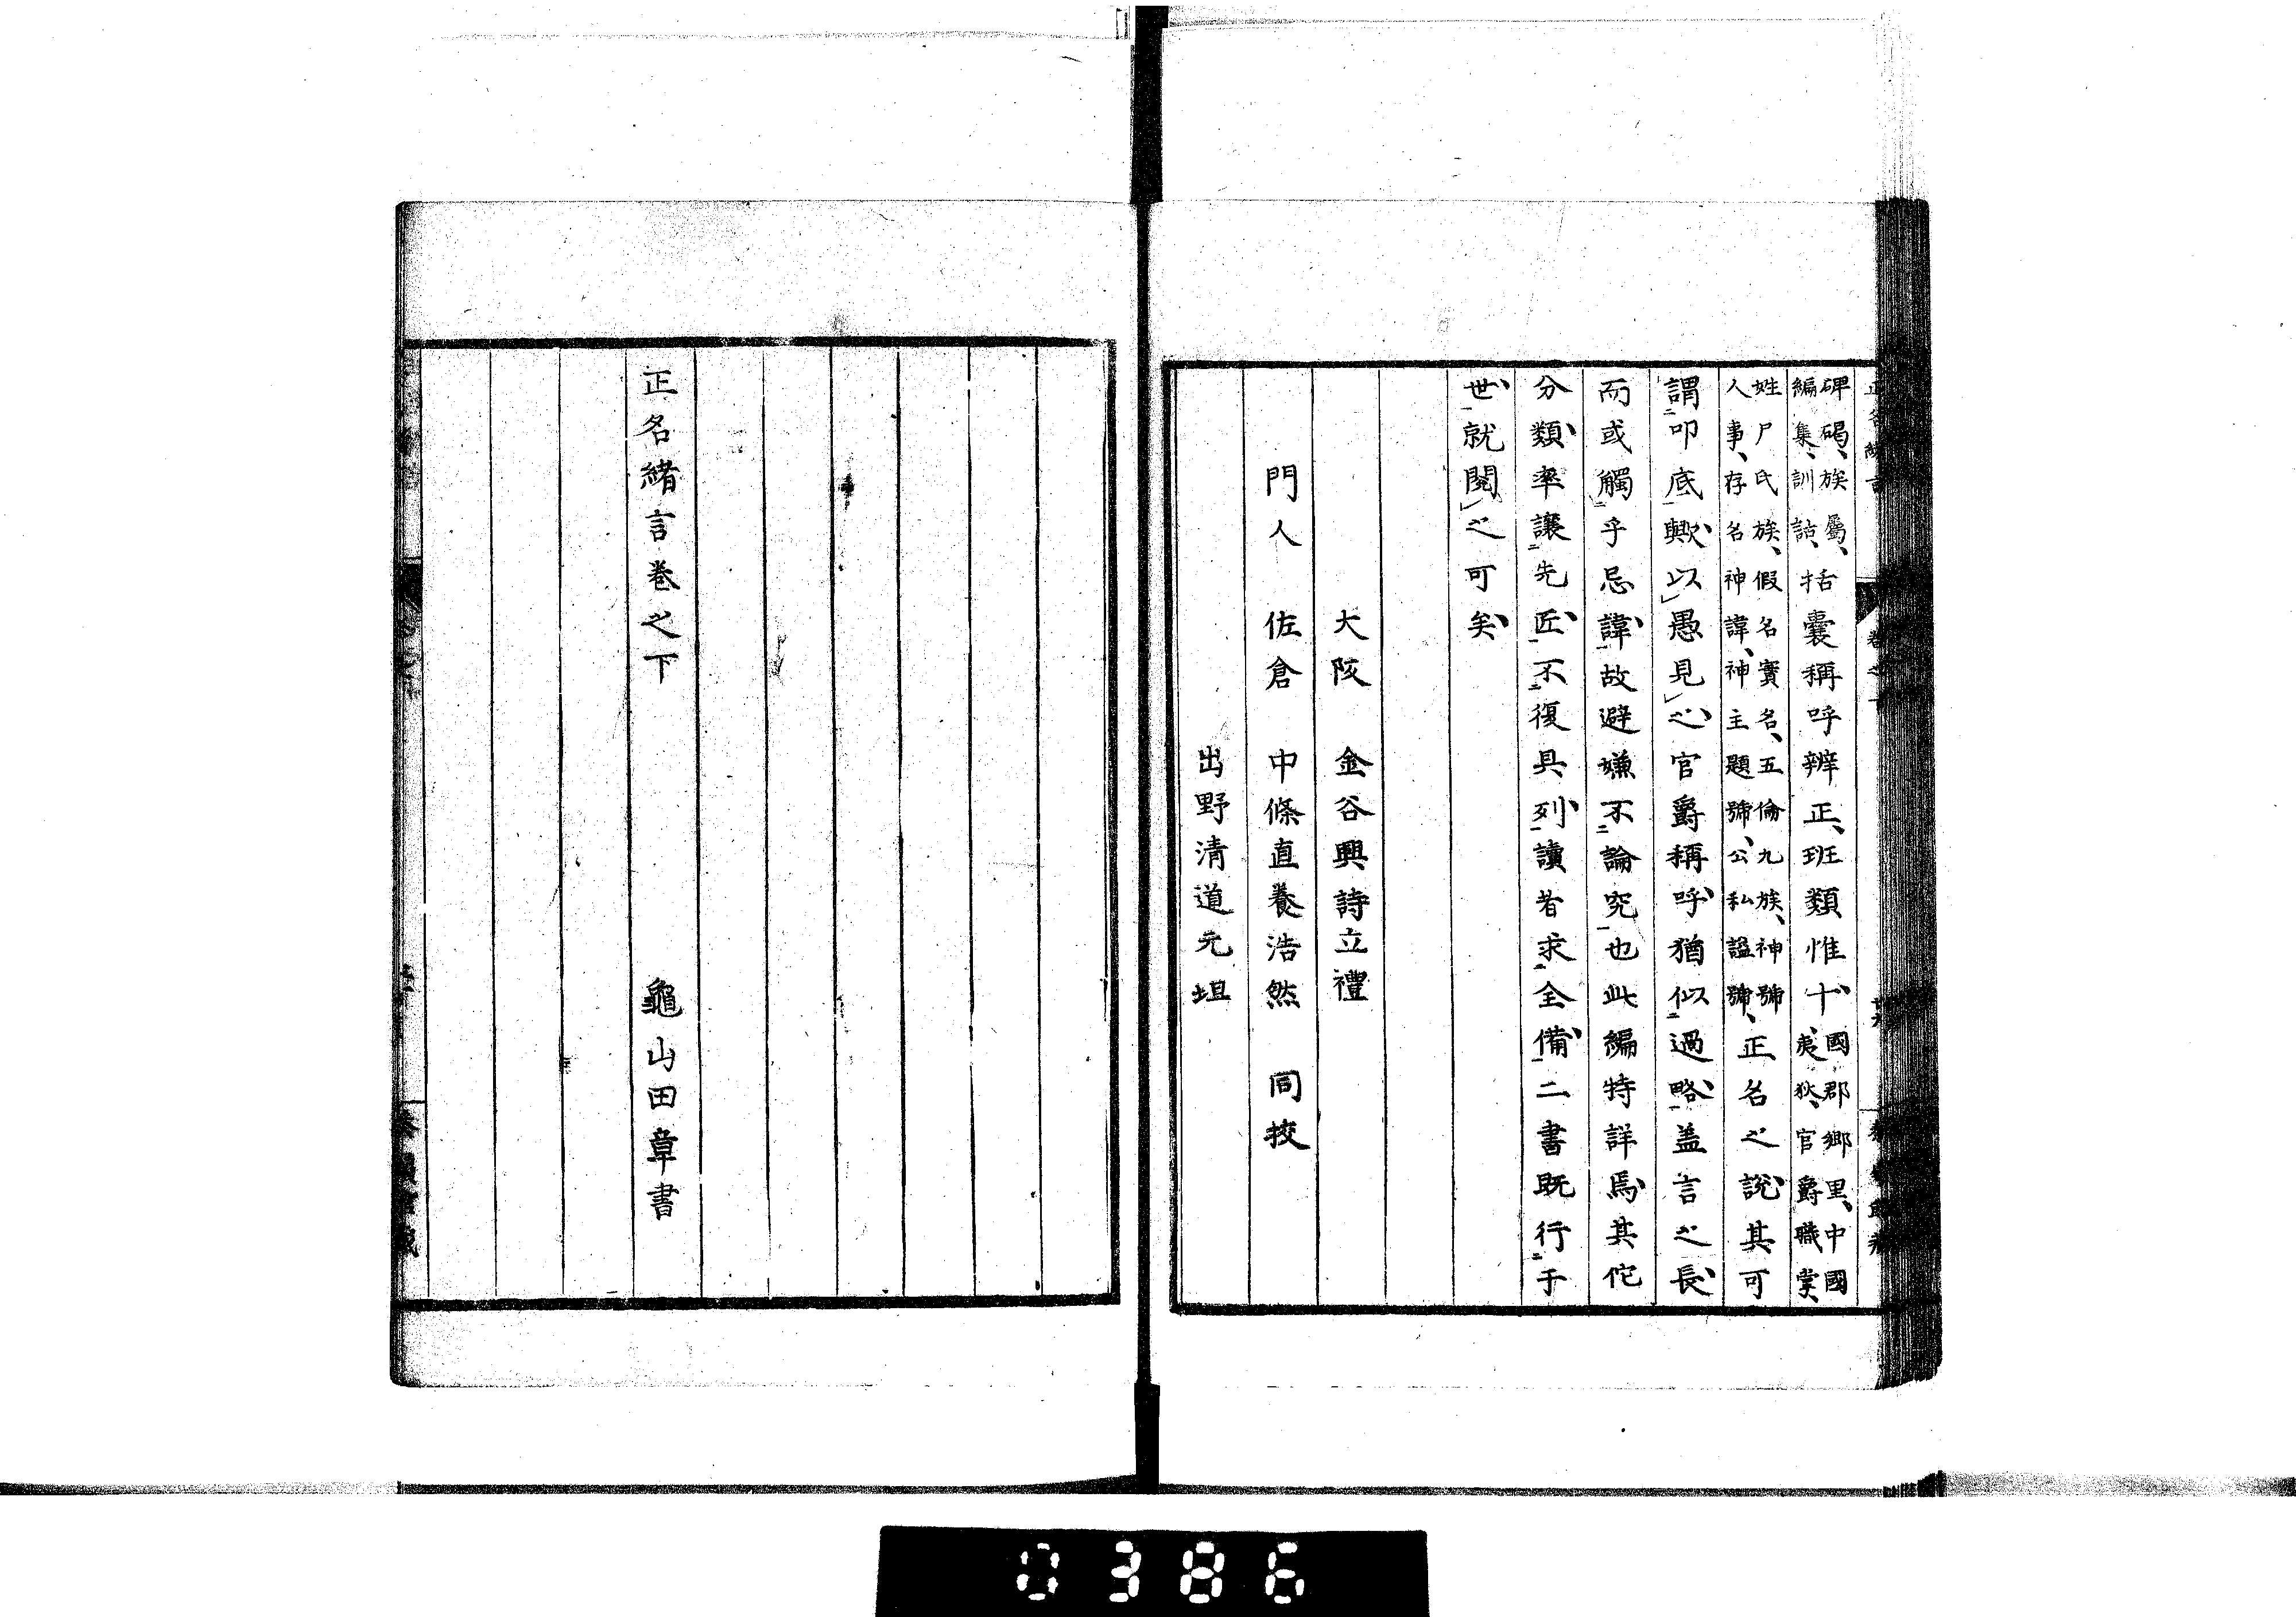 碑碣、族屬、
編集、訓詁、
括囊稱呼辨正、班類惟十、
國郡鄕里、中國
夷狄、官爵職掌、
姓尸氏族、假名實名、五倫九族、神號
人事、存名神諱、神主題號、公私謚號、
正名之説、其可
謂叩底歟、以愚見之、官爵稱呼、猶似過略、盖言之長、
而或觸乎忌諱、故避嫌不論究也此編特詳焉、其佗
分類、率讓先匠、不復具列、讀者求全備、二書既行于
世、就閲之可矣、
大阪 金谷興詩立禮
門人 佐倉 中條直養浩然 同挍
出野清道元坦
正名緒言巻之下 龜山田章書
0386